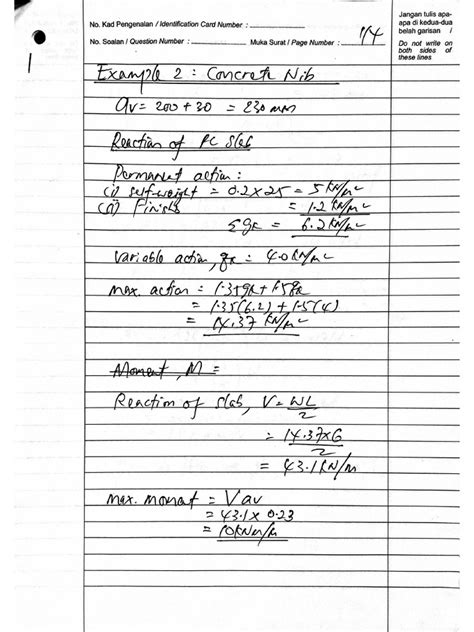 No. Kad Pengenalan / Identification Card Number :
No. Soalan / Question Number :
Muka Surat / Page Number : 1/4
Jangan tulis apa-
apa di kedua-dua
belah garisan /
Do not write on
both sides of
these lines
Example 2 : Concrete Nib
av = 200 + 30 = 230 mm
Reaction of PC Slab
Permanent action :
(i) self-weight = 0.2 x 25 = 5 kN/m²
(ii) Finishes = 1.2 kN/m²
Σgk = 6.2 kN/m²
Variable action, qk = 4.0 kN/m²
max. action = 1.35gk + 1.5qk
= 1.35(6.2) + 1.5(4)
= 14.37 kN/m²
Moment, M =
Reaction of slab, V = WL/2
= 14.37x6/2
= 43.1 kN/m
max. moment = Vav
= 43.1 x 0.23
= 10kNm/m